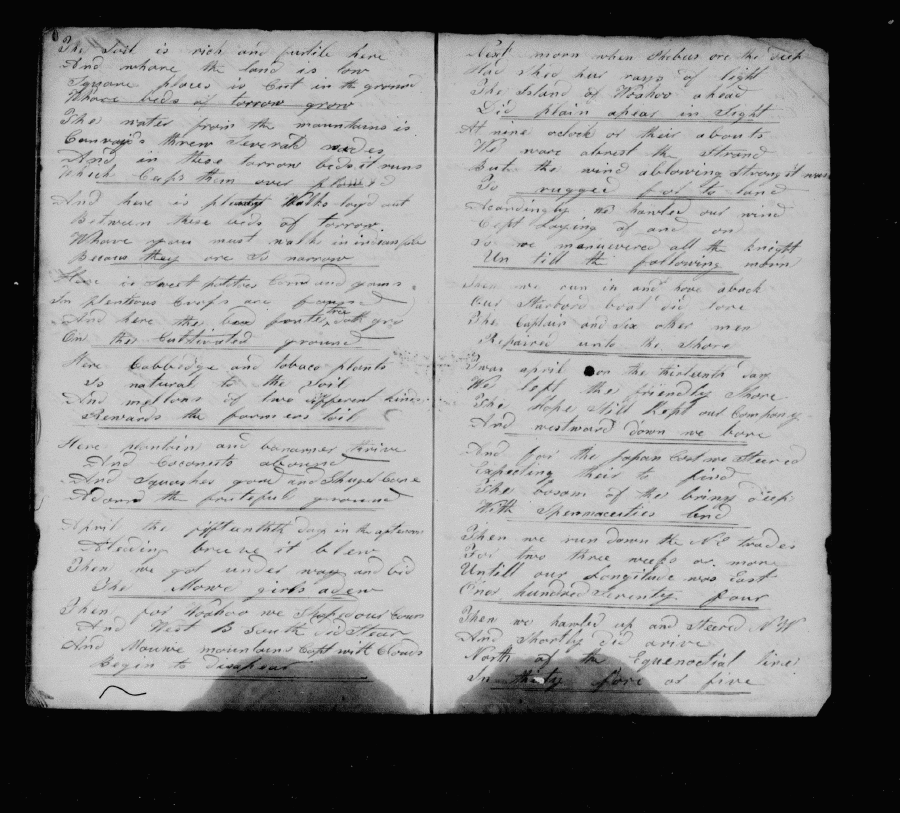 The Soil is rich and furtile here
And whare the land is low
Square places is Cut in the ground
Whare beds of torrow grow
The water from the mountains is
Convayd threw Severals
And in these torrow beds it runs
Which Caps them over
And here is Walks layd out
Between these beds of torrow
Whare you must walk in indean file
Becaus they are So narrow
Here is Sweet potitoes Corn and yams
In plenteous Crops are found
And here the tree doth gro
On this Cultivated ground
Here Cabbedge and tobaco plants
Is natural to the Soil
And mellons of two different kinds
Rewards the farmers toil
Here plantain and bananas thrive
And Coconuts abound
And Squashes gord and Shuger Cane
Adorns the fruteful ground
April the day in the afternoon
A leading breeze it blew
Then we got under way and bid
The Mowe girls adew
Then for Woahoo we Shaped our Cours
And West B South did Stear
And Mouwe mountains Capt with Clouds
Begin to disapear
Next morn when Phebus ore the deep
Had Shed her rays of light
The Island of Woahoo ahead
Did plain apear in Sight
At nine oclock or their abouts
We ware abrest the Strand
But the wind ablowing Strong it was
To rugged for to land
Acordingly we hawled our wind
Cept laying of and on
So we manuevered all the knight
Un till the following morn
Then we run in and hove aback
Our Starbord boat did lore
The Captain and Six other men
Repaired unto the Shore
Twas april on the thirteenth day
We left the friendly Shore
The Hope Still kept our Company
And westward down we bore
And for the Japan Cost we Steered
Expecting their to find
The bosom of the briny deep
With Spermaceties lind
Then we run down the N E trades
For two three weeks or more
Untill our Longitude was East
One hundred Seventy four
Then we hawled up and Steered N W
And Shortly did arive
North of the Equenoctial line
In thirty fore or five